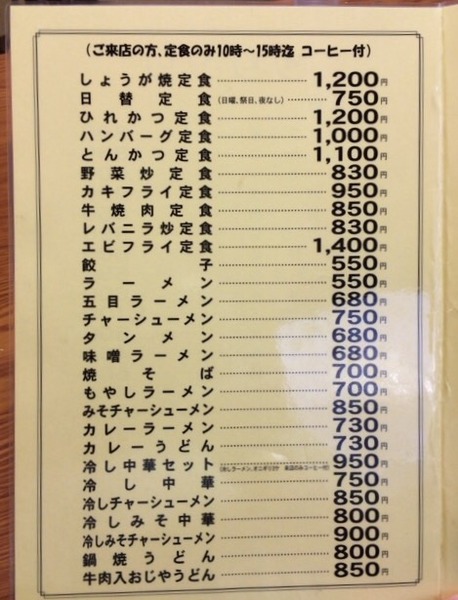 (ご来店の方、定食のみ10時~15時迄 コーヒー付)
しょうが焼定食 1,200円
日替定食(日曜、祭日、夜なし) 750円
ひれかつ定食 1,200円
ハンバーグ定食 1,000円
とんかつ定食 1,100円
野菜炒定食 830円
カキフライ定食 950円
牛焼肉定食 850円
レバニラ炒定食 830円
エビフライ定食 1,400円
餃子 550円
ラーメン 550円
五目ラーメン 680円
チャーシューメン 750円
タンメン 680円
味噌ラーメン 680円
焼そば 700円
もやしラーメン 700円
みそチャーシューメン 850円
カレーラーメン 730円
カレーうどん 730円
冷し中華セット 950円
冷し中華 750円
冷しチャーシューメン 850円
冷しみそ中華 800円
冷しみそチャーシューメン 900円
鍋焼うどん 800円
牛肉入おじやうどん 850円